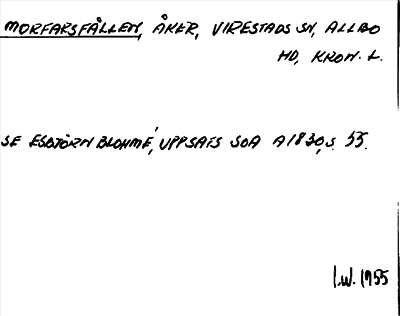 MORFARSFÄLLEN, ÅKER, VIRESTADS SN, ALLBO
HD, KRON. L.
SE ESBJÖRN BLOHMÉ, UPPSATS SOA A1830, S. 55.
I.W. 1955